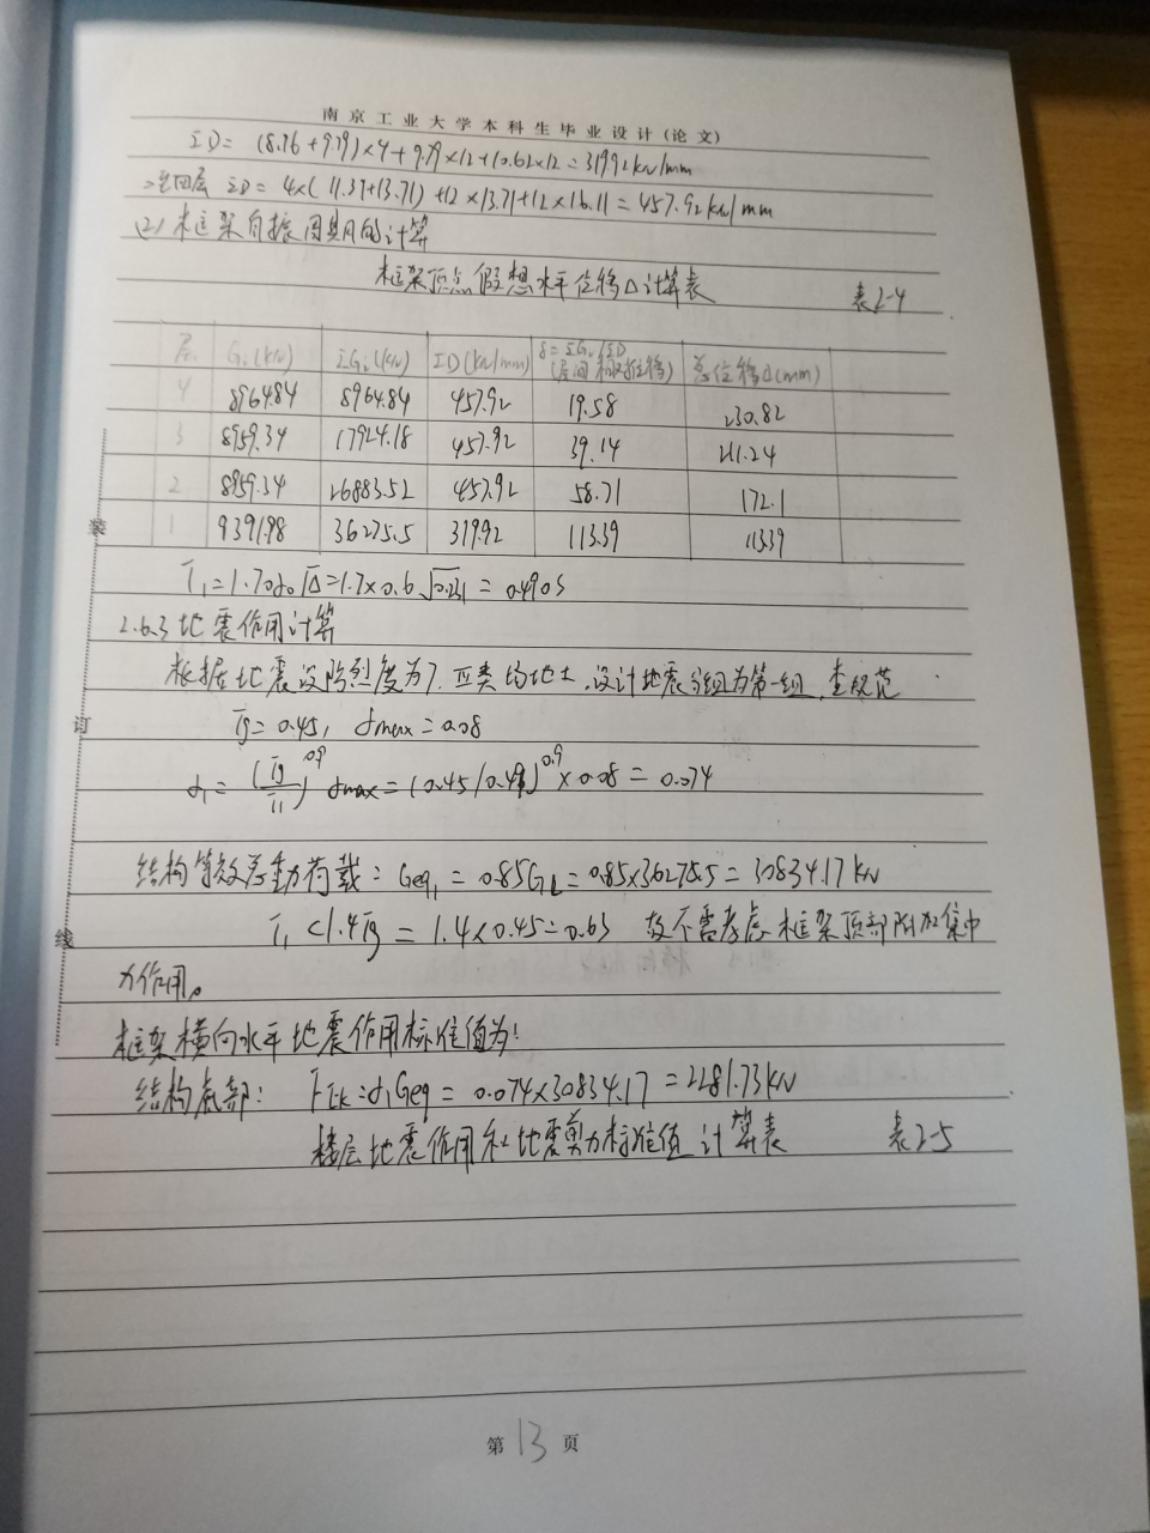 南京工业大学本科生毕业设计(论文)
ΣD= (8.76+9.79)×4+9.79×12+10.62×12=319.92kN/mm
二至四层 ΣD= 4×(11.37+13.71)+12×13.71+12×16.11=457.92kN/mm
(2)框架自振周期的计算
框架顶点假想水平位移Δ计算表 表2-4
层 Gi(kN) ΣGi(kN) ΣD(kN/mm) δ=ΣGi/ΣD (层间相对位移) 总位移Δ(mm)
4 8964.84 8964.84 457.92 19.58 230.82
3 8959.34 17924.18 457.92 39.14 211.24
2 8959.34 26883.52 457.92 58.71 172.1
1 9391.98 36275.5 319.92 113.39 113.39
T₁=1.70α₀√Δ=1.7×0.6√0.231=0.490s
2.6.3地震作用计算
根据地震设防烈度为7,Ⅲ类场地土,设计地震分组为第一组,查规范
Tg=0.45, αmax=0.08
α₁=(Tg/T₁)^0.9 αmax=(0.45/0.49)^0.9×0.08=0.074
结构等效总重力荷载:Geq₁=0.85GL=0.85×36275.5=30834.17kN
T₁<1.4Tg=1.4×0.45=0.63 故不需考虑框架顶部附加集中
力作用。
框架横向水平地震作用标准值为:
结构底部: FEk:α₁Geq=0.074×30834.17=2281.73kN
楼层地震作用和地震剪力标准值计算表 表2-5
装
订
线
第13页